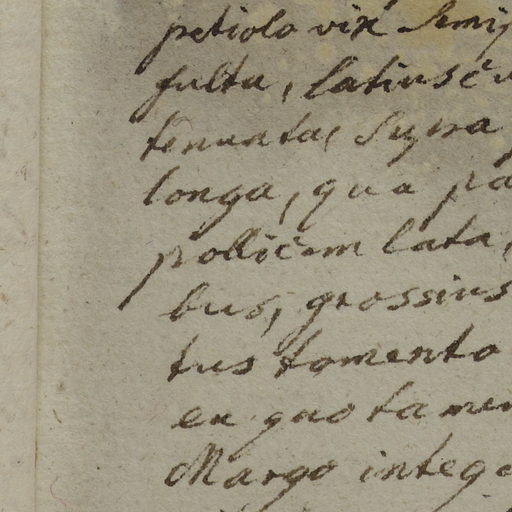 petiolo vix semi
fulta, latiuscu
tenuata, supra
longa, qua pa
pollicem lata,
bus, grossius
tus tomento
ex quo tamen
Margo integ